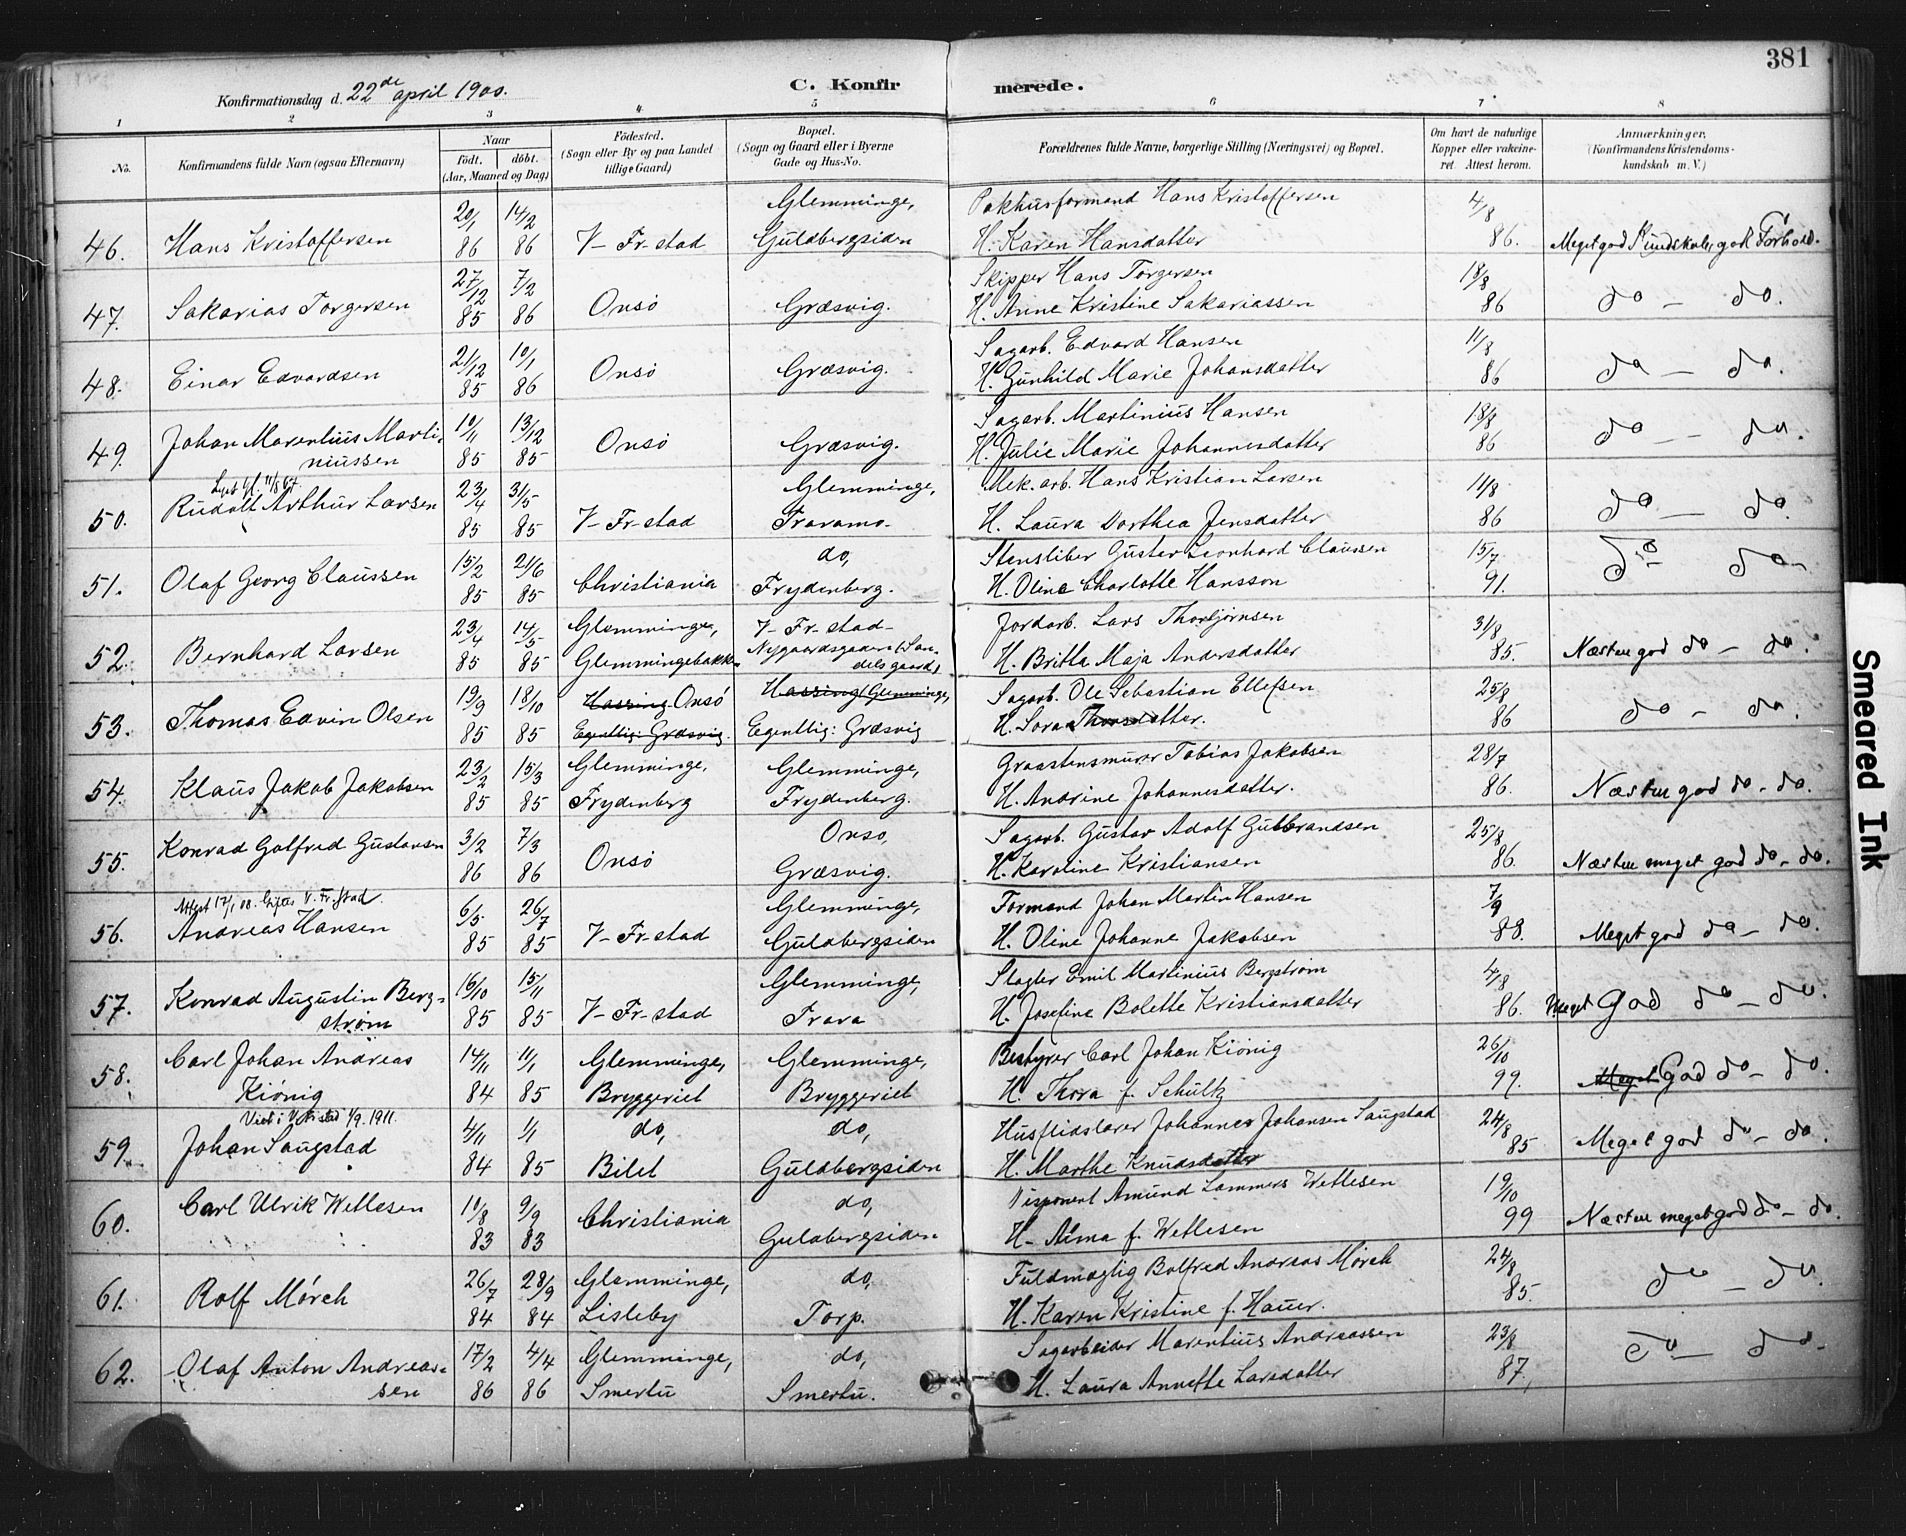 381
Konfirmationsdag d. 22de april 1900.
C. Konfirmerede.
1 2 3 4 5 6 7 8
No.
Konfirmandens fulde Navn (ogsaa Efternavn)
Naar
født. døbt.
(Aar, Maaned og Dag)
Fødested.
(Sogn eller By og paa Landet
tillige Gaard)
Bopæl.
(Sogn og Gaard eller i Byerne
Gade og Hus-No.
Forældrenes fulde Navne, borgerlige Stilling (Næringsvei) og Bopæl.
Om havt de naturlige
Kopper eller vakcine-
ret. Attest herom.
Anmærkninger,
(Konfirmandens Kristendoms-
kundskab m. V.)
20/1 14/2 Glemminge, Pakhusformand Hans Kristoffersen 4/8
46. Hans Kristoffersen 86 86 V- Fr-stad Guldbergsiden H. Karen Hansdatter 86. Meget god Kundskab, god Forhold.
27/12 7/2 Skipper Hans Torgersen 18/8
47. Sakarias Torgersen 85 86 Onsö Græsvig. H. Anne Kristine Sakariassen 86 do - do.
21/12 10/1 Sagarb. Edvard Hansen 11/8
48. Einar Edvardsen 85 86 Onsö Græsvig. H. Gunhild Marie Johansdatter 86 do - do.
Johan Marentius Marti- 10/11 13/12 Sagarb. Martinius Hansen 18/8
49. niussen 85 85 Onsö Græsvig. H. Julie Marie Johannesdatter 86 do - do.
11/8 67.
Rudolf Arthur Larsen 23/4 31/5 Glemminge, Mek. arb. Hans Kristian Larsen 11/8
50. 85 85 V- Fr-stad Traramo. H. Laura Dorthea Jensdatter 86 do - do.
15/2 21/6 do, Stensliber Gustav Leonhard Claussen 15/7
51. Olaf Georg Claussen 85 85 Christiania Frydenberg. H. Oline Charlotte Hansson 91. do - do -
23/4 14/5 Glemminge, V- Fr-stad- Jordarb. Lars Thorbjörnsen 31/8
52. Bernhard Larsen 85 85 Glemmingebakken Nygaardsgaden (San-
delsgaard) H. Britta Maja Andersdatter 85. Næsten god do - do.
19/9 18/10 Hassing Onsö Hassing (Glemminge, Sagarb. Ole Sebastian Ellefsen 25/8
53. Thomas Edvin Olsen 85 85 Egentlig: Græsvig. Egentlig: Græsvig H. Lovra Thorsdatter. 86 do - do.
23/2 15/3 Glemminge, Glemminge, Graastensmurer Tobias Jakobsen 28/7
54. Klaus Jakob Jakobsen 85 85 Frydenberg Frydenberg. H. Andrine Johannesdatter. 86. Næsten god do - do.
Konrad Golfred Gustavsen 3/2 7/3 Onsö, Sagarb. Gustav Adolf Gulbrandsen 25/8
55. 86 86 Onsö Græsvig. H. Karoline Kristiansen 86. Næsten meget god do - do.
Attest 17/1 08. Giftes V. Fr.stad.
6/5 26/7 Glemminge, Formand Johan Martin Hansen 7/9
56. Andreas Hansen 85 85 V- Fr-stad Guldbergsiden H. Oline Johanne Jakobsen 88. Meget god do - do.
Konrad Augustin Berg- 16/10 15/11 Glemminge, Slagter Emil Martinius Bergstrøm 4/8
57. strøm 85 85 V- Fr-stad Trara H. Josefine Bolette Kristiansdatter 86. Meget God do - do.
Carl Johan Andreas 14/11 11/1 Glemminge, Glemminge, Bestyrer Carl Johan Kiönig 26/10
58. Kiönig 84 85 Bryggeriet Bryggeriet H. Thora f. Schultz 99. Meget God do - do.
Viet i V. Fr.stad 1/9. 1911.
4/11 1/1 do, do, Husflidslærer Johannes Johansen Saugstad 24/8
59. Johan Saugstad 84 85 Bilet Guldbergsiden H. Marthe Knudsdatter 85 Meget god do - do.
Carl Ulrik Wetlesen 10/8 9/9 do, Disponent Amund Lammers Wetlesen 19/10
60. 83 83 Christiania Guldbergsiden H- Alma f. Wetlesen 99 Næsten meget god do - do.
26/7 28/9 Glemminge, do, Fuldmægtig Bolfred Andreas Mørch 24/8
61. Rolf Mørch 84 84 Lisleby Torp. H. Karen Kristine f. Hauer. 85. do - do.
Olaf Anton Andreas- 17/2 4/4 Glemminge, do, Sagarbeider Marentius Andreassen 23/8
62. sen 86 86 Smertu Smertu. H. Laura Annette Larsdatter 87, do - do -
Smeared Ink